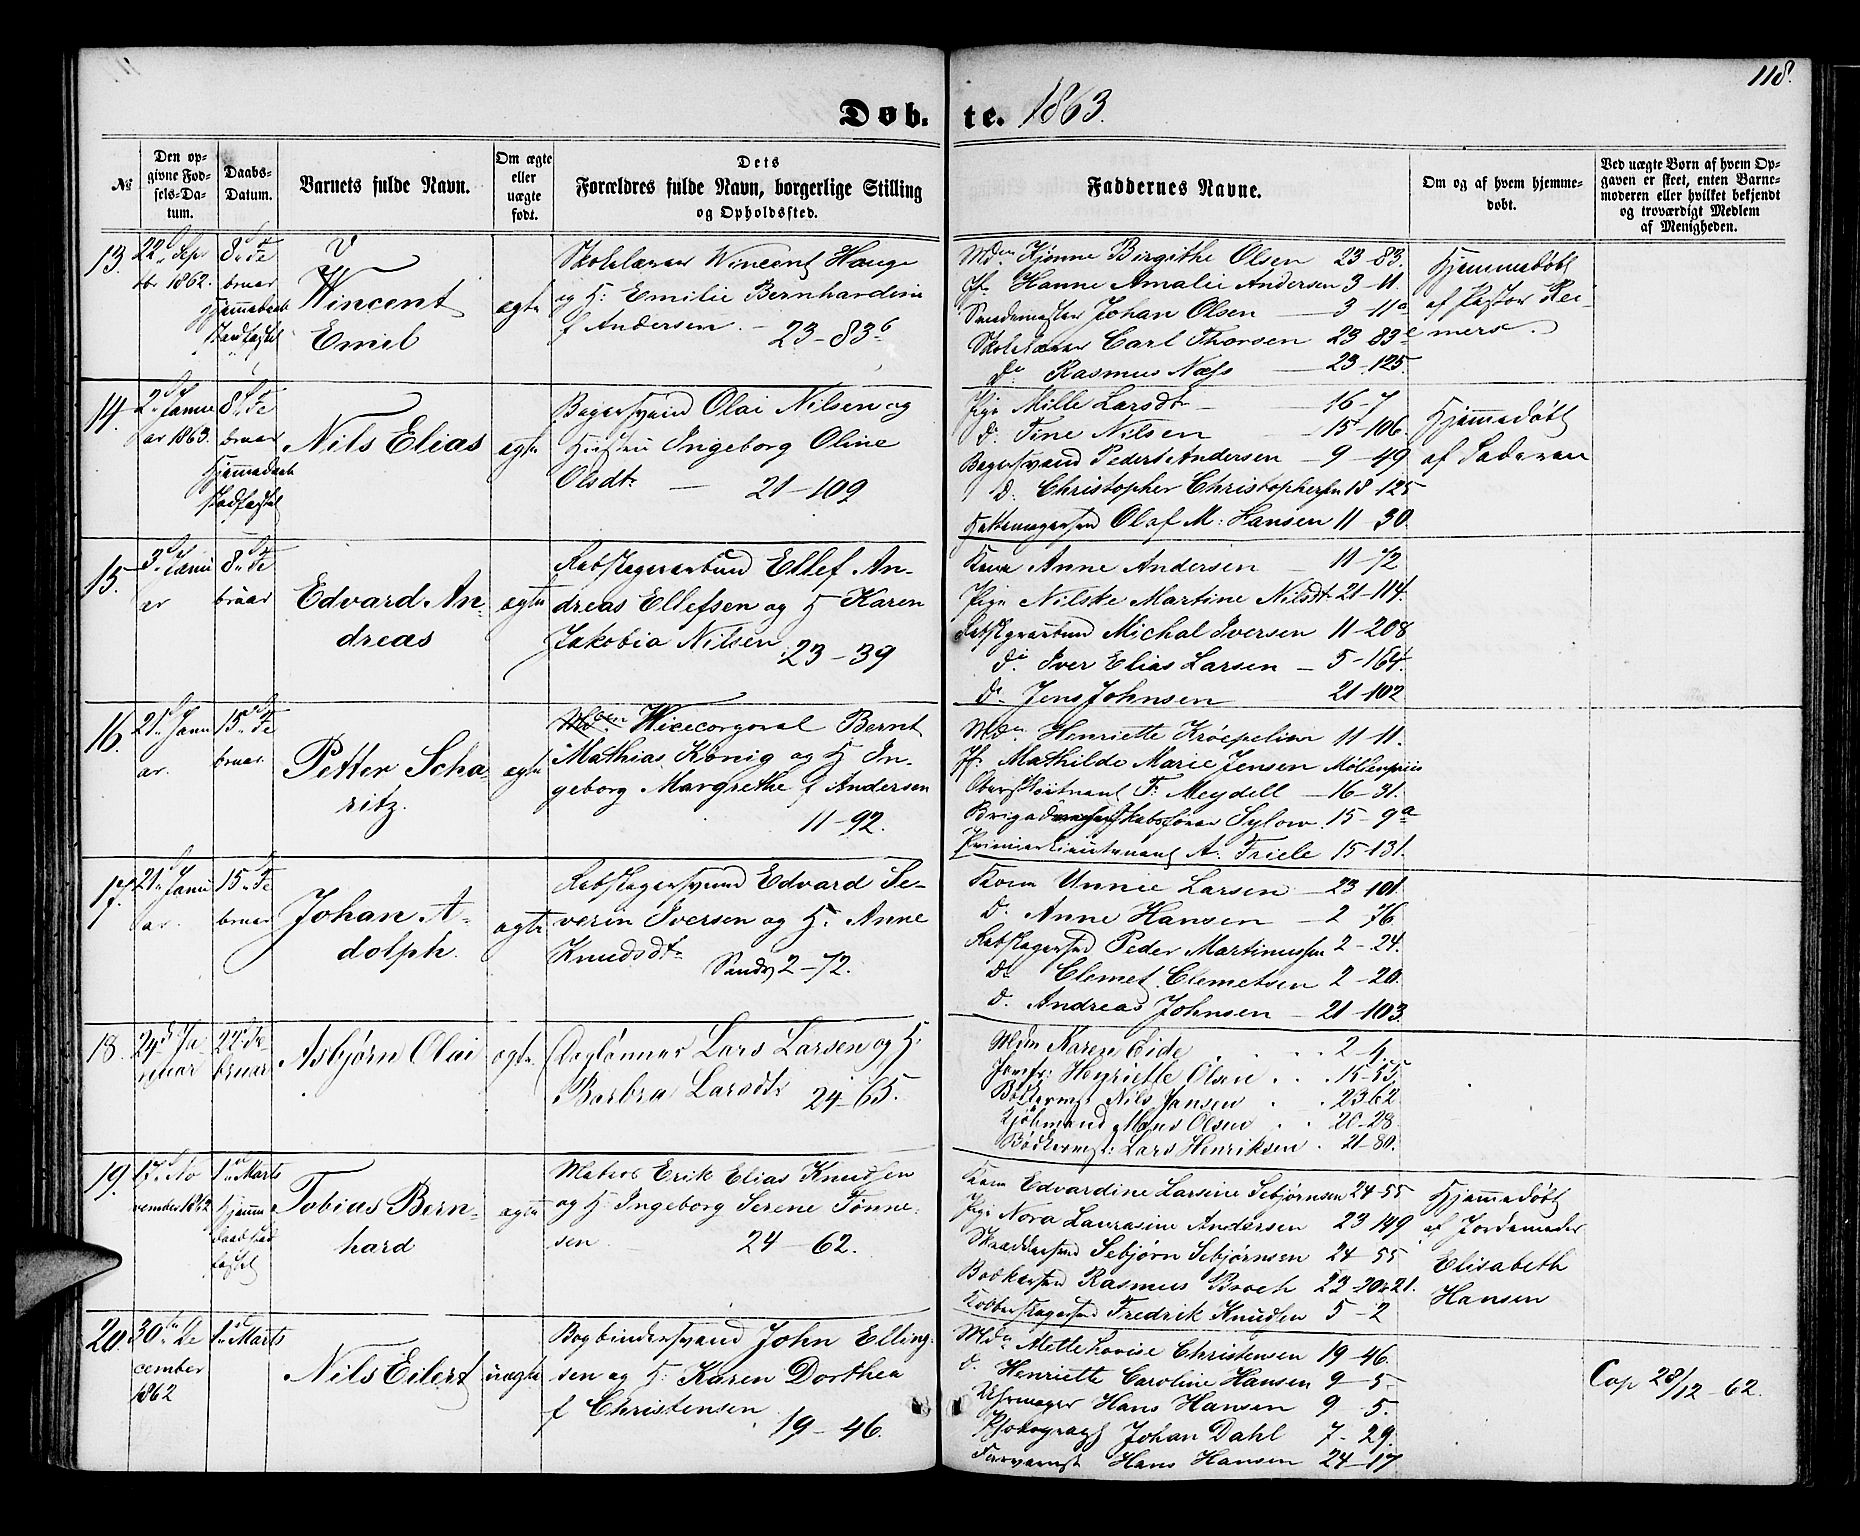 118.
Døb. te. 1863.
№
Den opgivne Fødsels-Datum.
Daabs-Datum.
Barnets fulde Navn.
Om ægte eller uægte født.
Dets Forældres fulde Navn, borgerlige Stilling og Opholdssted.
Faddernes Navne.
Om og af hvem hjemmedøbt.
Ved uægte Børn af hvem Opgaven er skeet, enten Barnemoderen eller hvilket bekjendt og troværdigt Medlem af Menigheden.
13.
22d Sep
tbr 1862.
8d Fe
bruar
Hjemmedaab
Stadfæstet
Wincent
Emil
ægte
Skolelærer Wincent Hauge
og H: Emilie Bernhardine
f Andersen. – 23–83b
Mdm Kjønne Birgithe Olsen 23–83.
Jf. Hanne Amalie Andersen 3–11.
Johan Olsen 3–11a
Skolelærer Carl Thorsen 23 83c
do Rasmus Næss 23–125.
Hjemmedøbt
af Pastor Rei
mers.
14.
2d Janu
ar 1863.
8d Fe
bruar
Hjemmedaab
stadfæstet
Nils Elias
ægte
Bagersvend Olai Nilsen og
Hustru Ingeborg Oline
Olsdtr — 21–109
Pige Mille Larsdtr – 16–7
do Tine Nilsen 15–106.
Bagersvend Peder Andersen – 9–49
do Christopher Christophersen 18–125
Olaf M. Hansen 11–30.
Hjemmedøbt
af Faderen
15.
3d Janu
ar
8d Fe
bruar
Edvard An-
dreas
ægte
Rebslagersvend Ellef An-
dreas Ellefsen og H Karen
Jakobia Nilsen 23–39
Kone Anne Andersen – 11–72
Pige Nilske Martine Nilsdtr 21–114.
Rebslagersvend Michal Iversen 11–208
do Iver Elias Larsen – 5–164.
do Jens Johnsen 21–102
16.
21d Janu
ar.
15d Fe
bruar.
Petter Scha-
ritz.
ægte
Wicecorporal Bernt
Mathias König og H In-
geborg Margrethe f Andersen
11–92.
Mdm Henriette Krøepelien 11–11.
Jf. Mathilde Marie Jensen Møllenpriis
Oberstlieutnant F. Meydell – 16–31.
Sylow. 15–9a
Premierlieutenant A. Friele 15–131.
17.
21d Janu
ar.
15d Fe
bruar
Johan A-
dolph.
ægte
Rebslagersvend Edvard Se-
verin Iversen og H. Anne
Knudsdtr Sandv 2–72.
Kone Unnie Larsen – 23 101.
do Anne Hansen – 2 76
Rebslagersvd Peder Martinussen 2–24.
do Clemet Clemetsen 2–20.
do Andreas Johnsen – 21–103.
18.
29d Ja
nuar
22d Fe
bruar
Asbjørn Olai
ægte
Daglønner Lars Larsen og H.
Barbra Larsdtr 24–65.
Mdm Karen Eide . . . 2–4.
Jomfr: Henriette Olsen . . 15–55.
Bødkermst Nils Jansen . 23 62
Kjøbmand Mons Olsen . . 20–28.
Bødkermst: Lars Henriksen . 21–80.
19.
17d No
vember 1862
1d Marts
Hjemme
daab stad
fæstet
Tobias Bern-
hard
ægte
Matros Erik Elias Knudsen
og H Ingeborg Serene Tønne-
sen — 24–62.
Kone Edvardine Larsine Sebjørnsen 24–55
Pige Nora Laurasine Andersen 23 149
Skræddersvd Sebjørn Sebjørnsen 24–55
Bødkersvd Rasmus Broch – 23–20
Kobberslagersvd Fredrik Knudsen 5–2
Hjemmedøbt
af Jordemoder
Elisabeth
Hansen
20.
30te De
cember
1862
1d Marts
Nils Eilert
uægte
Bogbindersvend John Elling-
sen og H. Karen Dorthea
f Christensen. 19–46.
Mdm Mette Lovise Christensen 19–46.
do Henriette Caroline Hansen 9–5.
Uhrmager Hans Hansen 9–5.
Photograph Johan Dahl 7–29.
Farvermst Hans Hansen 24–17
Cop 28/12–62.